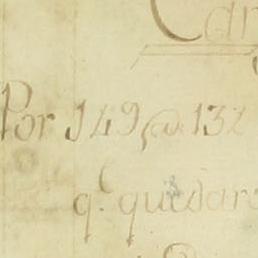 Car
Por 149 @ 132
q.ᵉ quedaro